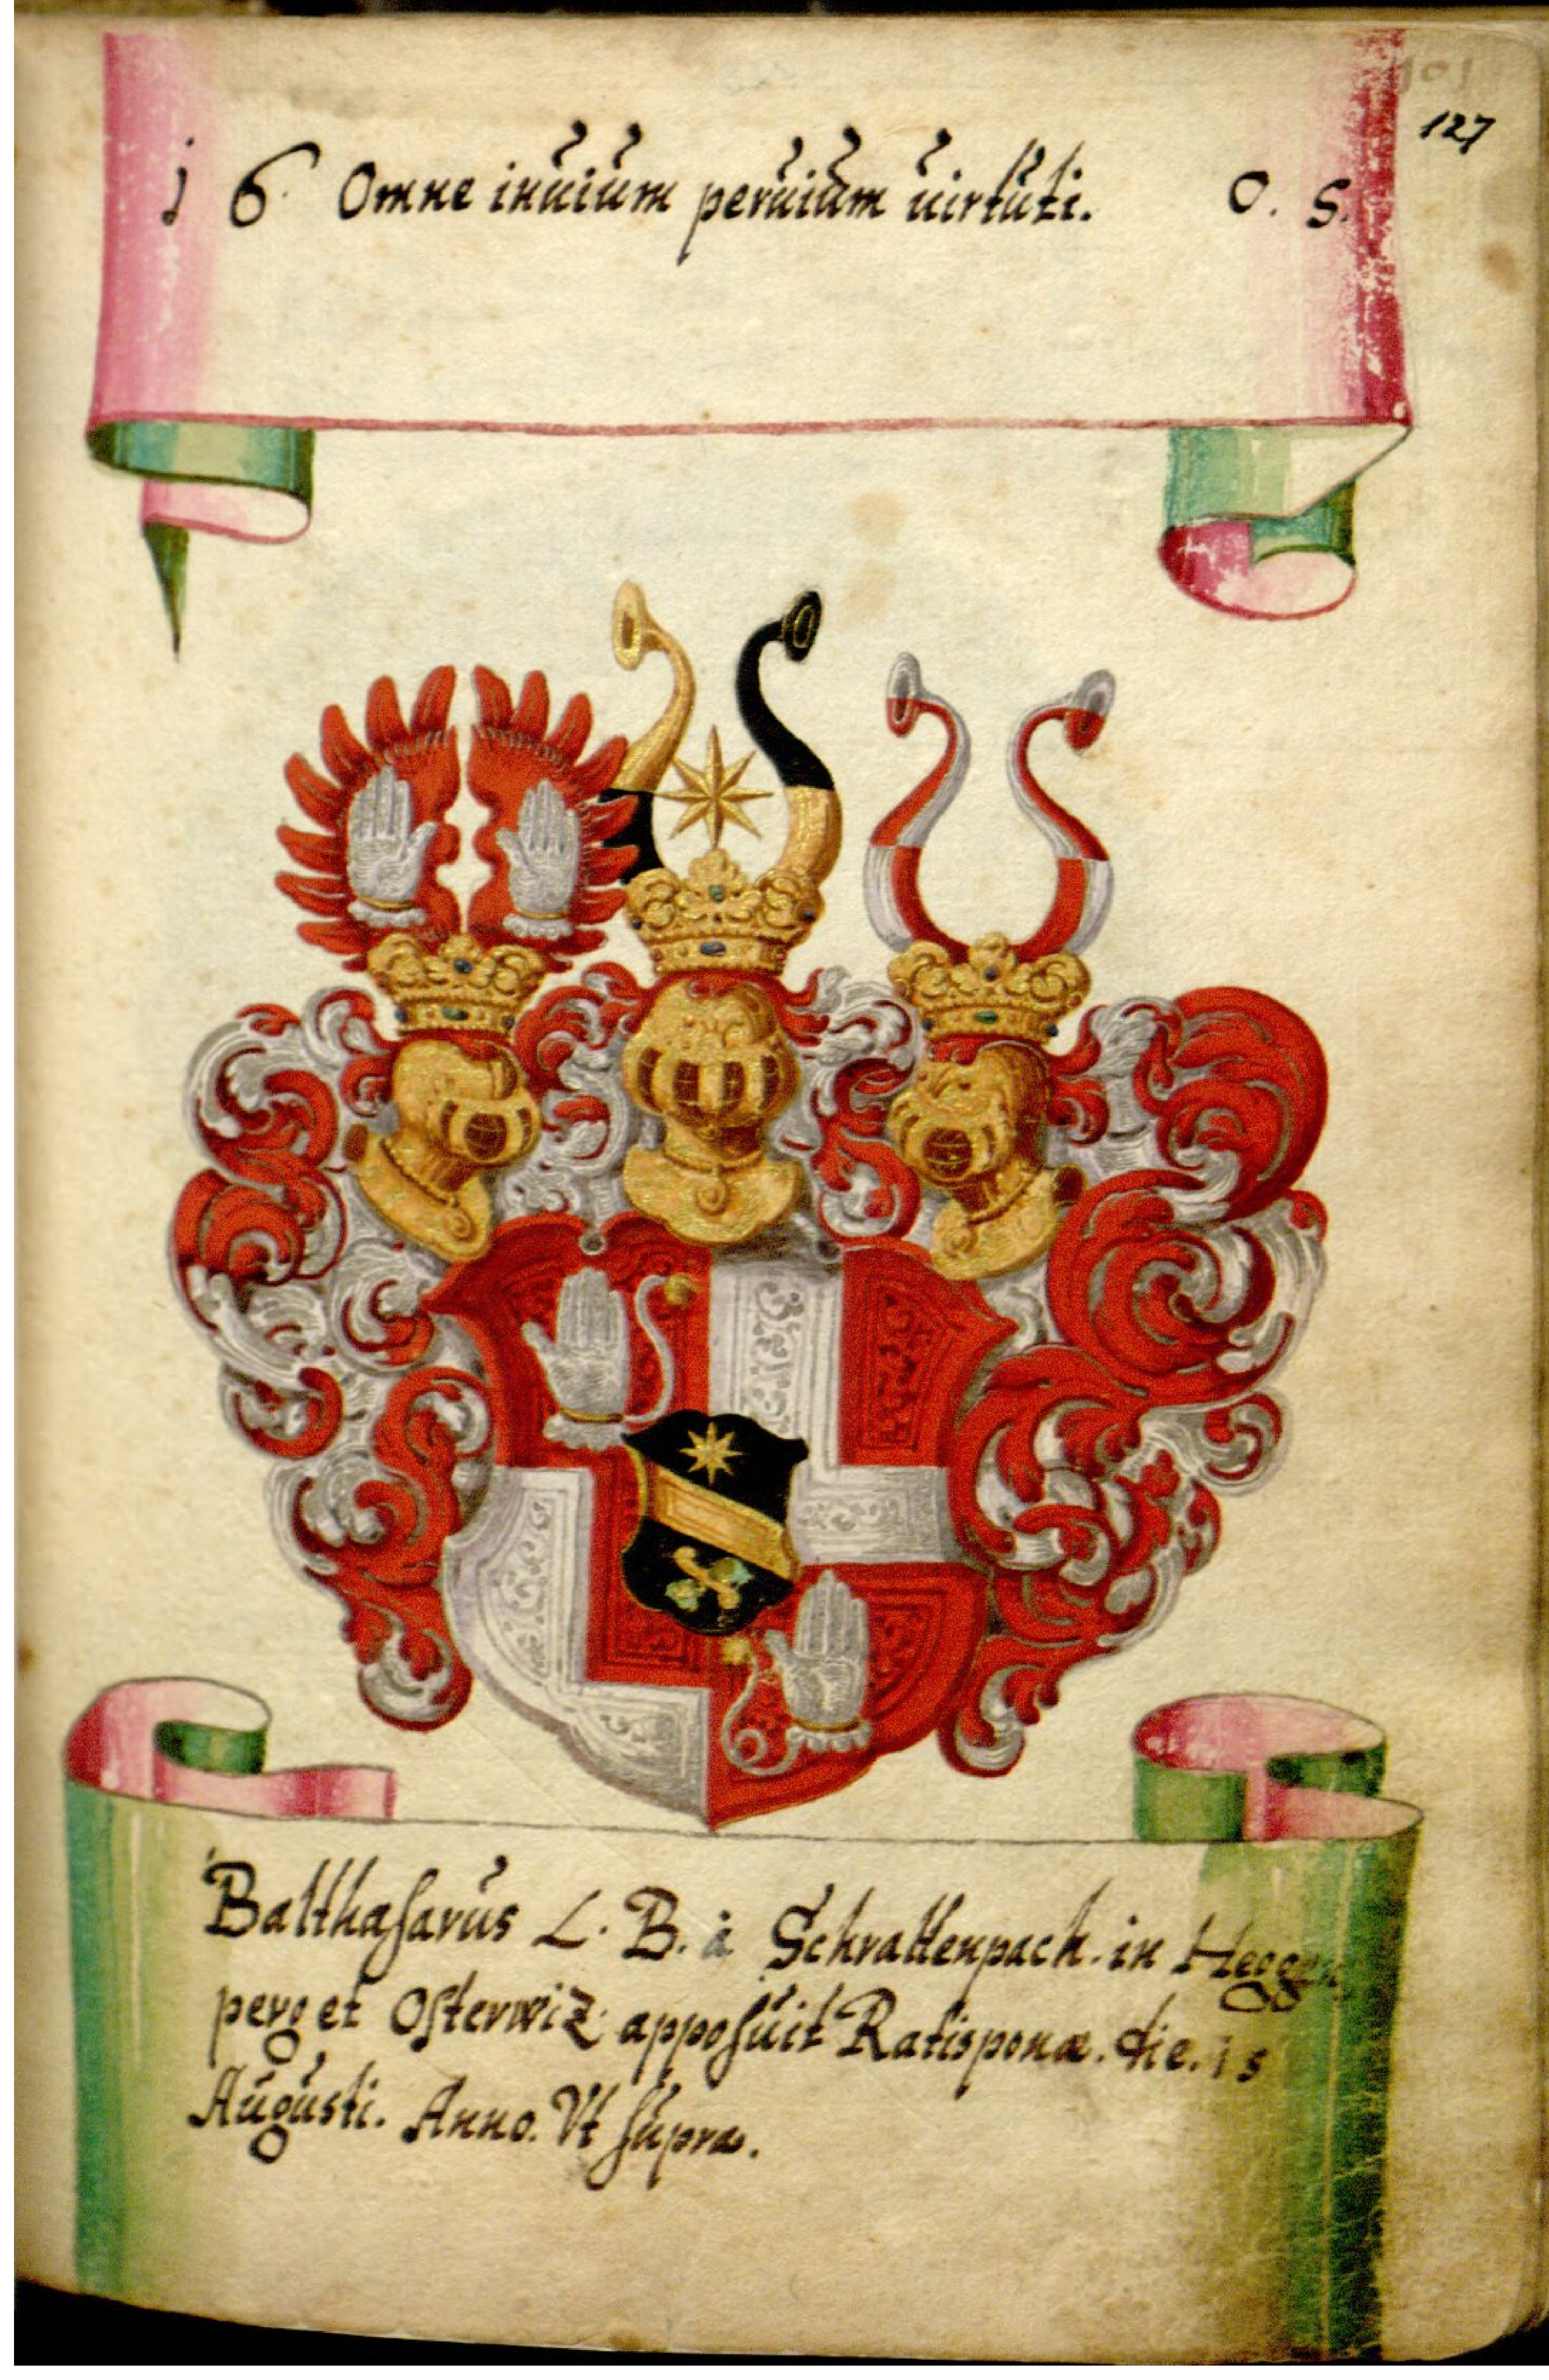 101
127
1 6. Omne inuium peruium uirtuti. 0. 5.
Balthasarus L. B. à Schrattenpach. in Heggen
perg et Osterwiz. apposuit Ratisponæ. die. 15
Augusti. Anno. Vt supra.